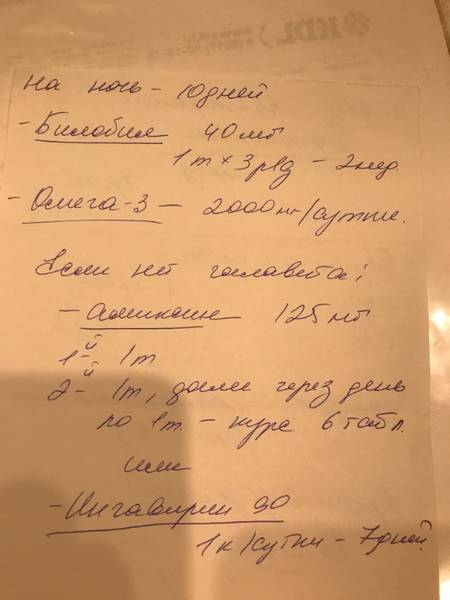 На ночь - 10 дней
- Билобил 40 мг
1т × 3 р/д - 2 нед.
- Омега-3 - 2000 мг/сутки.
Если нет
- Амиксин 125 мг
1-й 1т
2-й 1т, далее через день
по 1т. - курс 6 табл.
или
- Ингавирин 90
1к/сутки - 7 дней